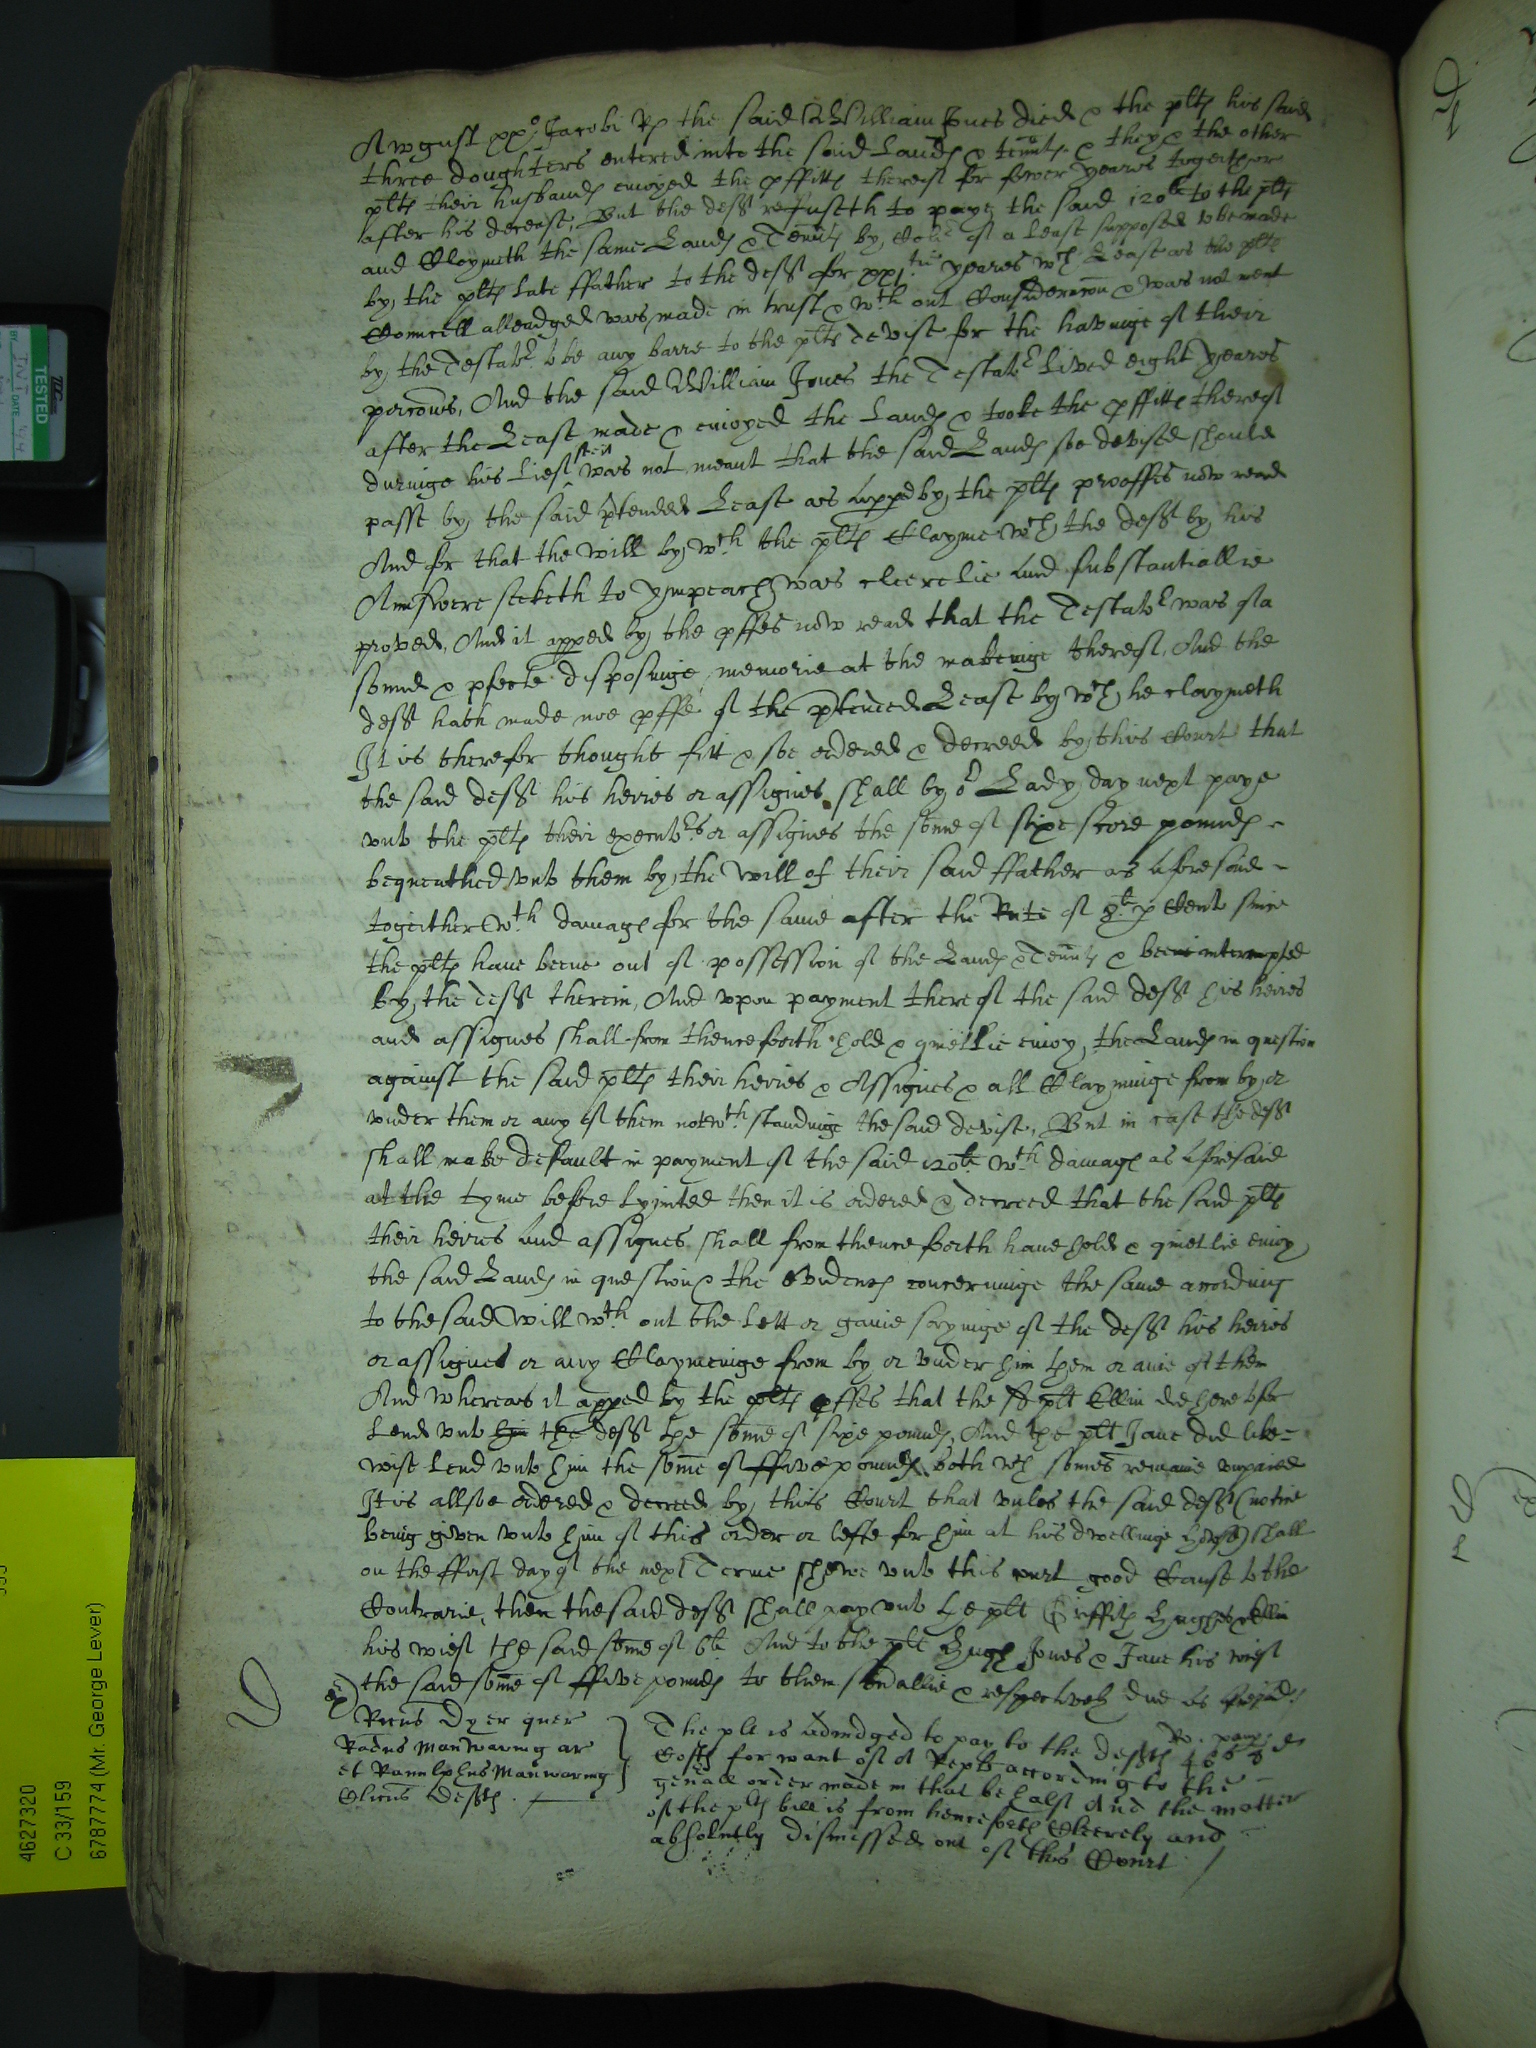 August xxo Jacobi Rs the said William Jones died & the plts his said
three doughters entered into the said Lands & tenmts & they & the other
plts their husbands enioyed the pffitts thereof for fower yeares togeither
after his decease, But the deft refuseth to paye the said 120li to the plts
and Claymeth the same Lands & Tenmts by Coler of a Lease supposed to be made
by the plts late ffather to the deft for xxjtie yeares wch Lease as the plts
Councell alleadged was made in trust & wth out Consideracon & was not ment
by the Testator to be any barre to the plts devise for the havinge of their
porcons, And the said William Jones the Testator Lived eight yeares
after the Lease made & enioyed the Lands & tooke the pffitts thereof
duringe his Lief soe it was not meant that the said Lands soe devised should
passe by the said ptended Lease as appd by the plts prooffes now read
And for that the will by wch the plts Clayme wch the deft by his
Answere seeketh to ympeach was cleerelie and substantiallie
proved, And it apped by the pffes now read that the Testator was of a
sound & pfecte disposinge memorie at the makeinge thereof, And the
deft hath made noe pffe of the ptended Lease by wch he claymeth
It is therefor thought fitt & soe ordered & decreed by this Court that
the said deft his heires or assignes shall by or Lady day next paye
unto the plts their executors or assignes the some of sixe score pounds
bequeathed unto them by the will of their said ffather as aforesaid
togeither wth damages for the same after the Rate of 8li p Cent since
the plts have beene out of possession of the Lands & Tenmts & beene interrupted
by the deft therein, And upon payment thereof the said deft his heires
and assignes shall from thenceforth hold & quietlie enioy the Lands in question
against the said plts their heires & Assignes & all Clayminge from by or
under them or any of them notwth standinge the said devise, But in case the deft
shall make default in payment of the said 120li wth damages as aforesaid
at the tyme before lymited then it is ordered & decreed that the said plts
their heires and assignes shall from thenceforth have hold & quietlie enioy
the said Lands in question & the Evidences concerninge the same accordinge
to the said Will wth out the Lett or gaine sayinge of the deft his heires
or assignes or any Claymeinge from by or under him them or anie of them
And whereas it apped by the plts pffes that the sd plt Ellin did heretofor
Lend unto him the deft the some of sixe pounds, And the plt Jane did like=
wise Lend unto him the some of ffive pounds both wch somes remaine unpaied
It is allsoe ordered & decreed by this Court that unles the said deft (notice
being given unto him of this order or lefte for him at his dwellinge house) shall
on the ffirst day of the next Terme shewe unto this curt good Cause to the
Contrarie, then the said deft shall pay unto the plt Griffith Hughes & Ellin
his wief the said some of 6li And to the plt Hugh Jones & Jane his wief
the said some of ffive pounds to them severallie & respectively due as aforesaid
Ricus Dyer quer
Radus Manwaring ar
et Ranulphus Manwaring
Clicus defts
The plt is Adiudged to pay to the defts 46s 8d
Costs for want of a Replc according to the
genall order made in that behalf And the matter
of the plts bill is from henceforth Cleerely and
absolutly dismissed out of this Court
TESTED
4627320
C 33/159
6787774 (Mr. George Lever)